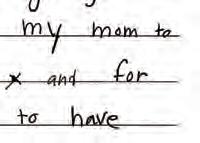 my mom to
x and for
to have